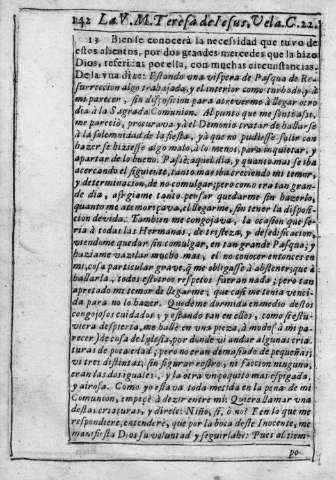 242 La V. M. Teresa de Iesus, Vela. C. 22.
13 Bien se conocerà la necessidad que tuvo de
estos alientos, por dos grandes mercedes que la hizo
Dios, referidas por ella, con muchas circunstancias.
De la vna dize: Estando vna vispera de Pasqua de Re-
surreccion algo trabajada, y el interior como turbado, y à
mi parecer, sin disposicion para atreverme à llegar otro
dia à la Sagrada Comunion. Al punto que me sentì assi,
me pareciò, procurava yà el Demonio tratar de hallarse
à la solemnidad de la fiesta, y à que no pudiesse salir con
hazer se hiziesse algo malo, à lo menos, para inquietar, y
apartar de lo bueno. Passè aquel dia, y quanto mas se iba
acercando el siguiente, tanto mas iba creciendo mi temor,
y determinacion, de no comulgar; pero como era tan gran-
de dia, afligiame tanto pensar quedarme sin hazerlo,
quanto me atemorizava, el llegarme, sin tener la disposi-
cion devida. Tambien me congojava, la ocasion que se-
ria à todas las Hermanas, de tristeza, y desedificacion,
viendome quedar sin comulgar, en tan grande Pasqua; y
haziame vazilar mucho mas, el no conocer entonces en
mi, cosa particular grave, q̃ me obligasse à abstener; que à
hallarla, todos estotros respetos fueran nada; pero tan
apretado mi temor de llegarme, que casi me tenia venci-
da para no lo hazer. Quedème dormida en medio destos
congojosos cuidados, y estando tan en ellos, como si estu-
viera despierta, me hallè en vna pieza, à modo (à mi pa-
recer) de cosa de Iglesia, por donde vi andar algunas cria-
turas de poca edad; pero no eran demasiado de pequeñas;
vi tres distintas, sin figurar rostro, ni faccion ninguna,
eran las dos iguales, y la otra vn poquito mas espigada,
y airosa. Como yo estava toda metida en la pena de mi
Comunion, empecè à dezir entre mi: Quiero llamar vna
destas criaturas, y dirèle: Niño, sì, ò no? Y en lo que me
respondiere, entenderè, que por la boca deste Inocente, me
manifiesta Dios su voluntad y seguirlahè: Pues al tiem-
po-